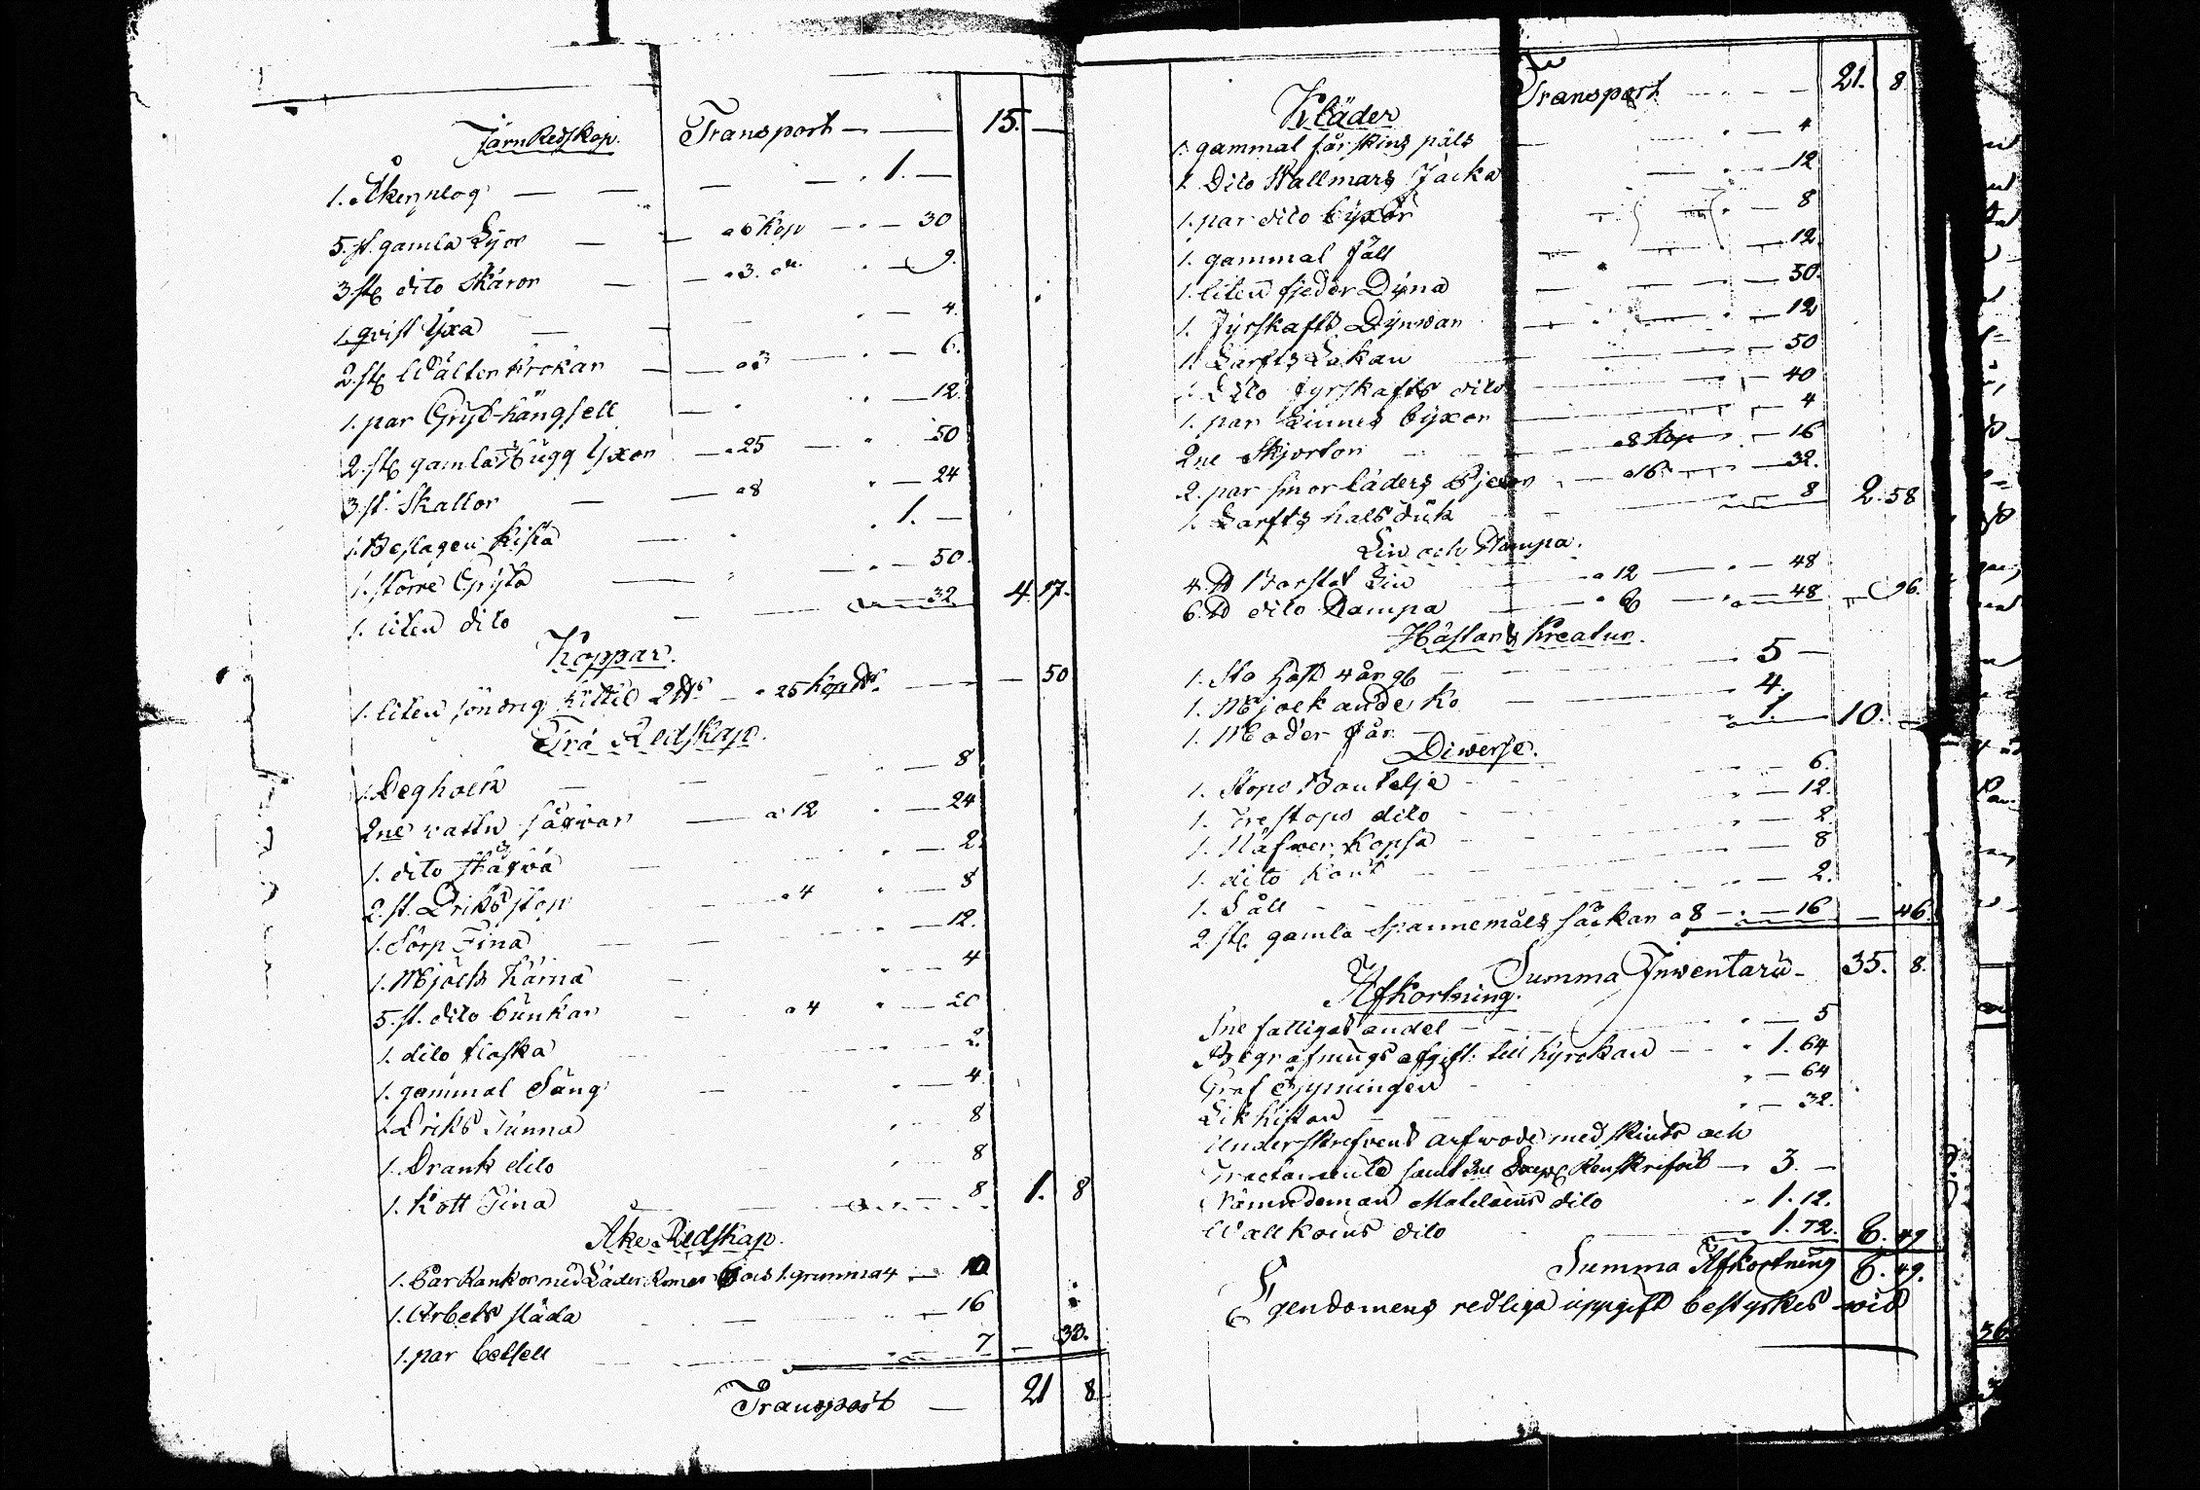 JärnRedskap. Transport — 15. —
1. Åkerplog — — — 1. —
5. st. gamla Lijor — a 6 kop — 30
3. st dito Skäror — a 3. — 9.
1. qvist Yxa — 4.
2. st Wälter krokar — a 3 — 6.
1. par Gryt-hängsell — 12.
2. st gamla Hugg Yxor — a 25 — 50
3. st. Skallor — a 8 — 24
1. Beslagen kista — 1. —
1. större Gryta — 50.
1. liten dito — 32 4. 17.
Koppar.
1. liten söndrig kittel 2 ℔ a 25 kop ℔ — — 50
Trä Redskap.
1. Deghoelk — 8
2ne vattu såjvar — a 12 — 24
1. dito skäpva — 2.
2. st. Driks stop — a 4 — 8
1. Sörp Tina — 12.
1. Mjölk kärna — 4
5. st. dito bunkar — a 4 — 20
1. dito flaska — 2.
1. gammal Säng — 4
1. Driks Tunna — 8
1. Drank dito — 8
1. Kött Tina — 8 1. 8
Åke Redskap.
1. Bar kankor med Läder 1. grimma 4 — 10
1. Arbets släda — 16
1. par betsell — 7 — 33.
Transport — 21 8.
Kläder Transport — 21. 8.
1. gammal fårskins päls — 4
1. Dito Wallmars Jacka — 12
1. par dito byxor — 8
1. gammal fäll — 12.
1. liten fjeder Dyna — 50.
1. Fyrskafts Dynwar — 12
1. Larfts Lakan — 50
1. Dito fyrskafts dito — 40
1. par Linnes byxor — 4
2ne Skjortor — a 8 kop — 16
2. par smorläders Bjexor — a 16 — 32.
1. Larfts halsduk — 8 2. 58
Lin och Hampa.
4. ℔ Borstat Lin — a 12 — 48
6. ℔ dito Hampa — a 8 — 48 — 96.
Hästar & Kreatur.
1. Sto häst 4 år g. — 5 —
1. Mjölkande ko — 4.
1. Moder får — 1. 10. —
Diwerse.
1. Stops Boutelje — 6.
1. Trestops dito — 12.
1. Näfwer Kopsa — 2
1. dito kont — 8
1. Såll — 2.
2. st. gamla spannemåls säckar a 8 — 16 — 46.
Summa Inwentarii — 35. 8.
Afkortning.
Ine fattigas andel — 5
Begrafnings afgift. till kyrckan — 1. 64
Graf öppningen — 64
Likkistan — 32.
Underskrefvens arfwode med skiuts och
Tractamente samt Ine Renskrifvet — 3. —
Nämndeman dito — 1. 12.
dito — 1. 72. 6. 49
Summa Afkortning 6. 49.
Egendomens redliga uppgift bestyrkes wid